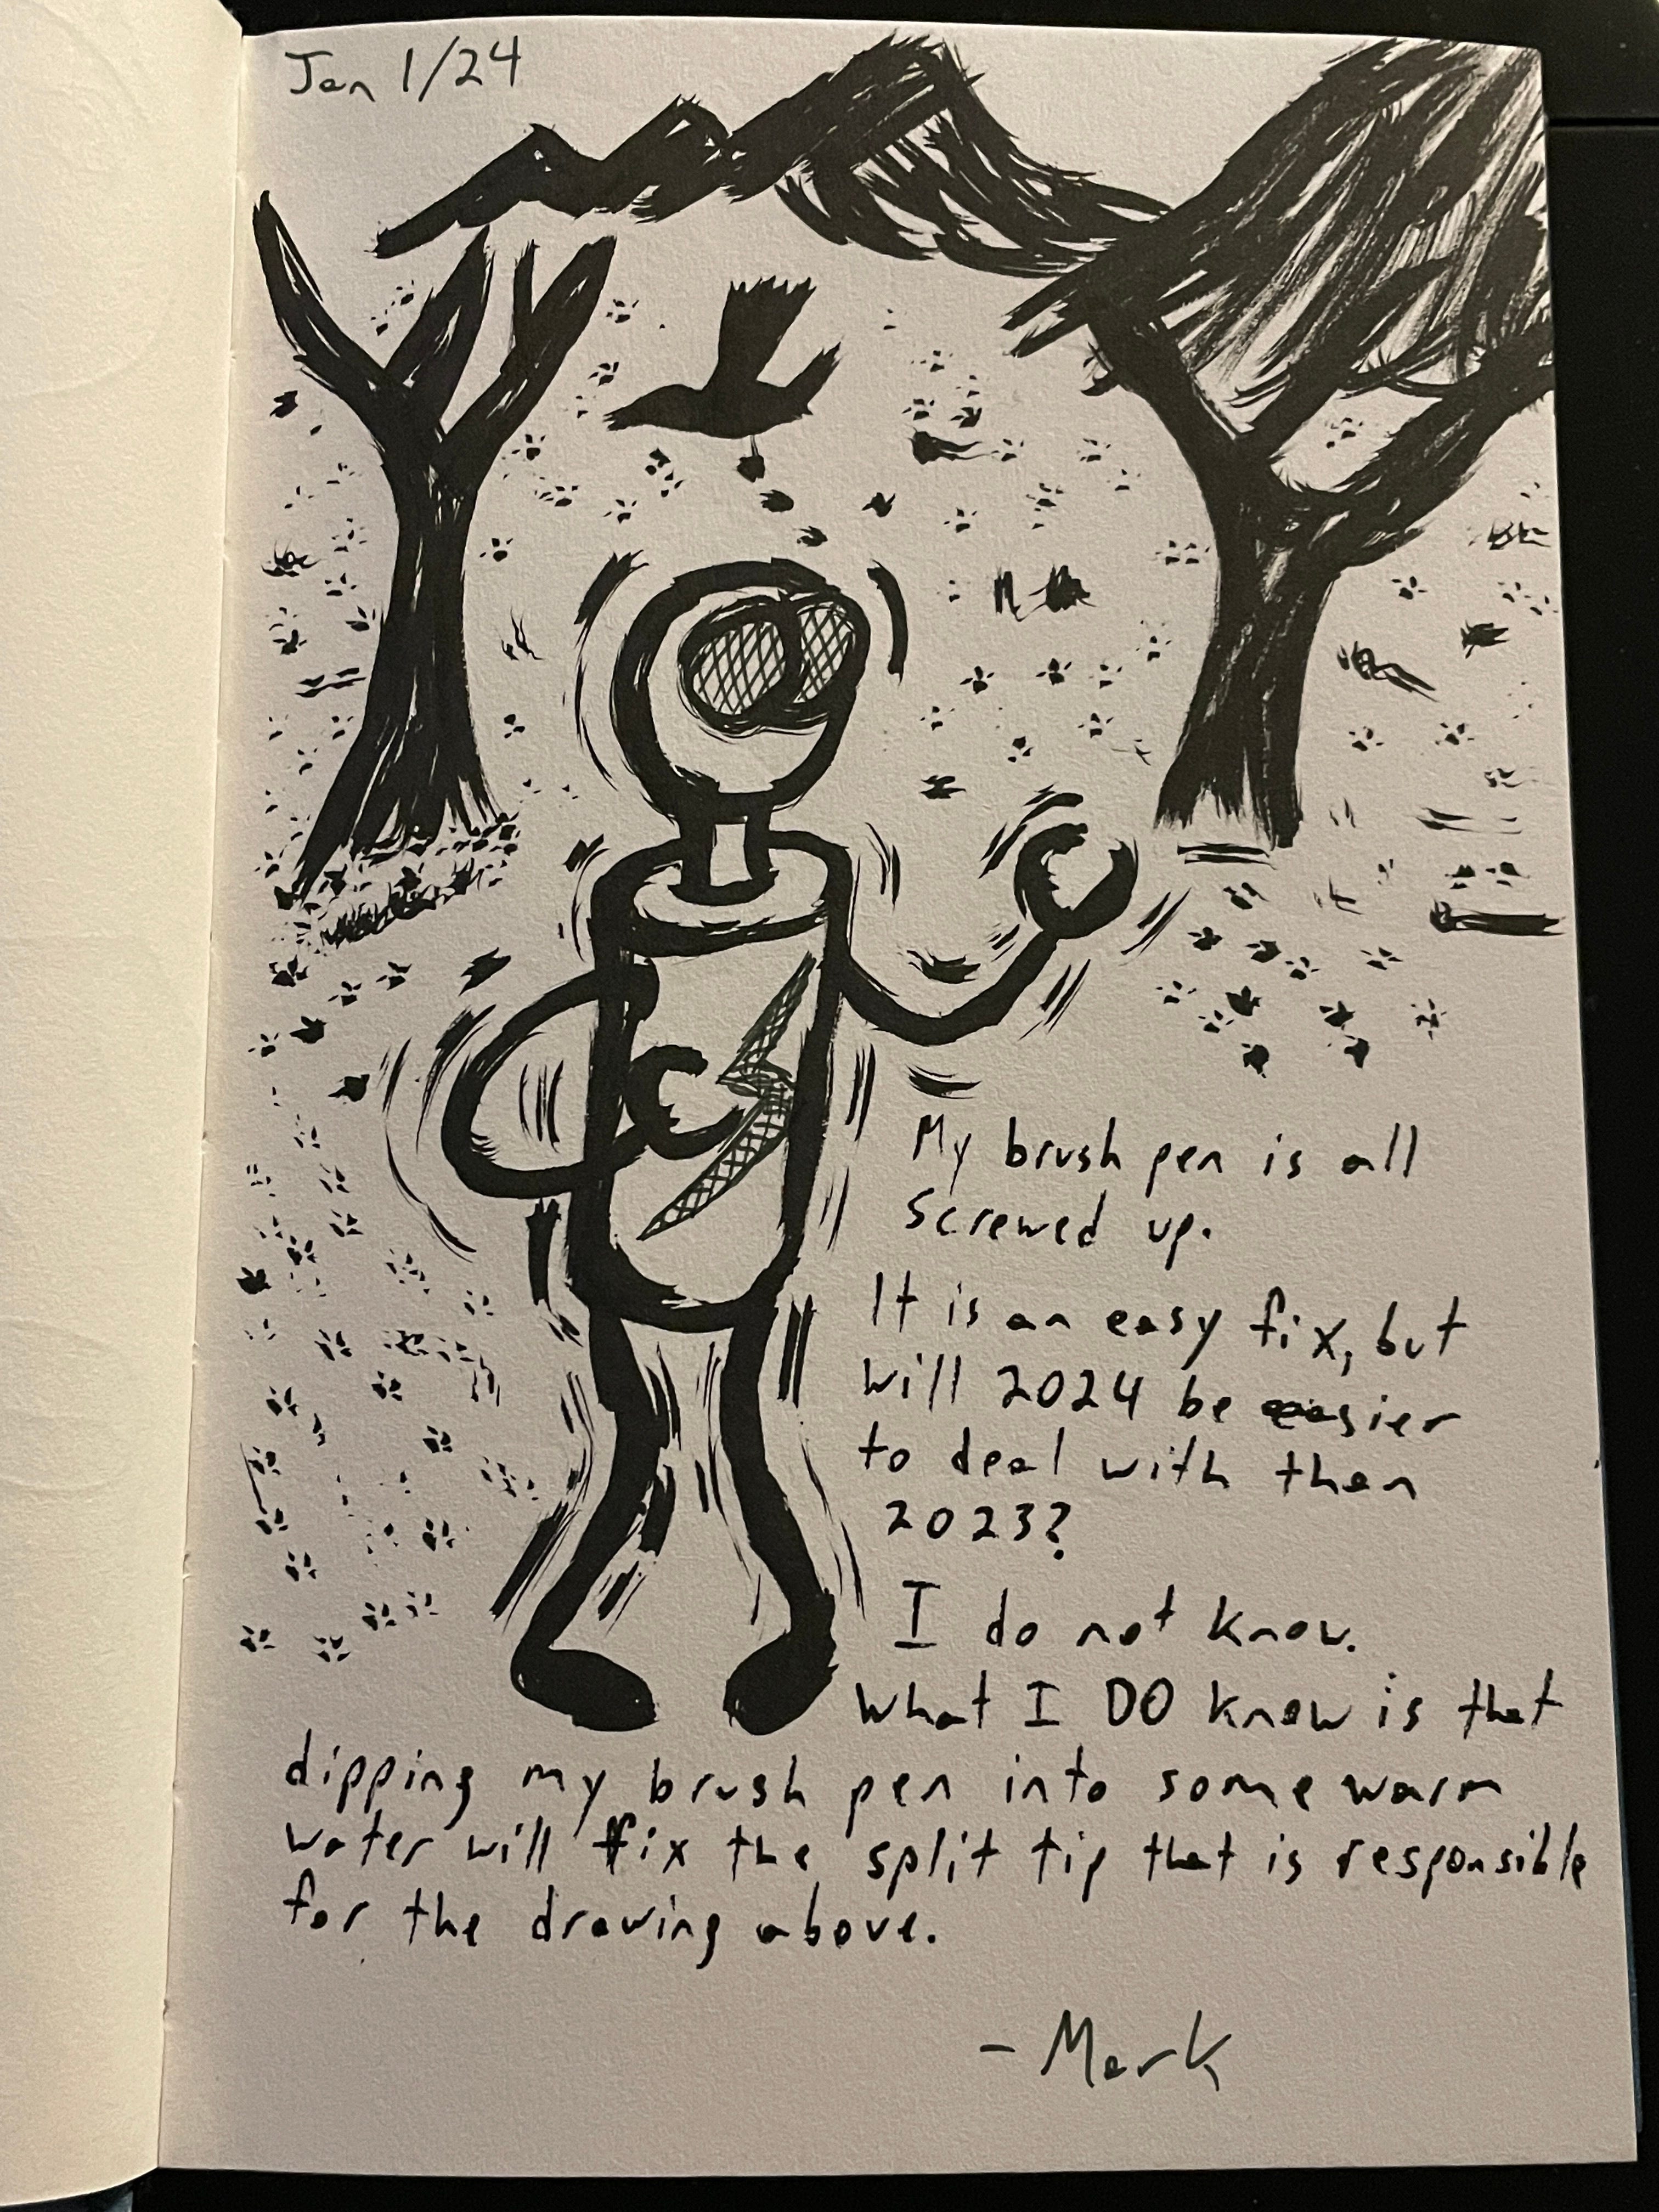 Jan 1/24
My brush pen is all
screwed up.
It is an easy fix, but
will 2024 be easier
to deal with than
2023?
I do not know.
What I DO know is that
dipping my brush pen into some warm
water will fix the split tip that is responsible
for the drawing above.
- Mark